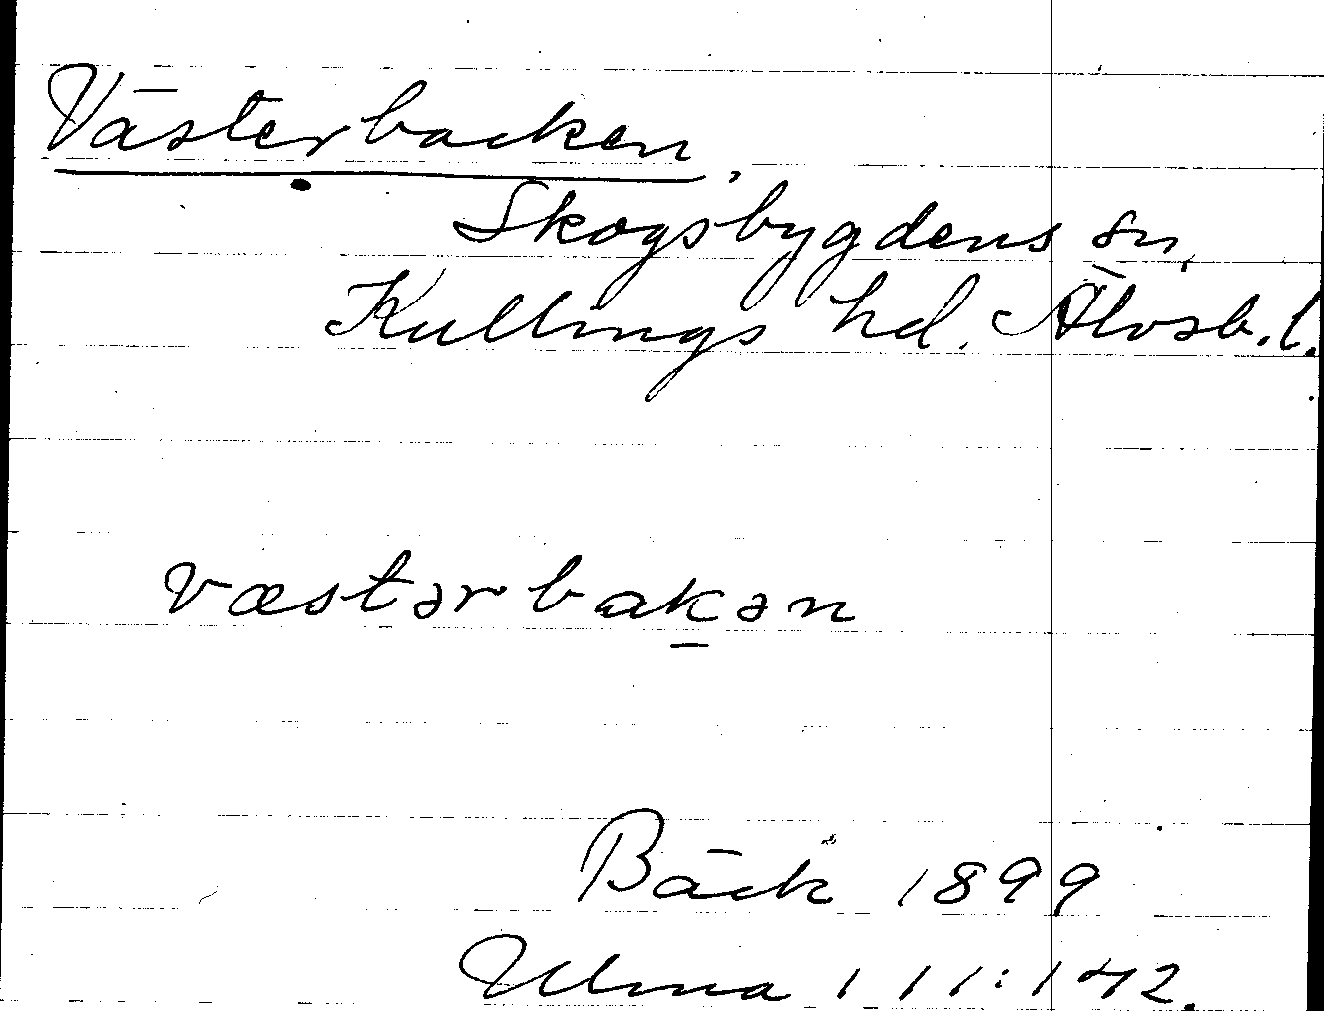 Västerbacken,
Skogsbygdens sn,
Kullings hd. Älvsb. l.
væstərbak̲ən
Bäck 1899
Ulma 111:142.